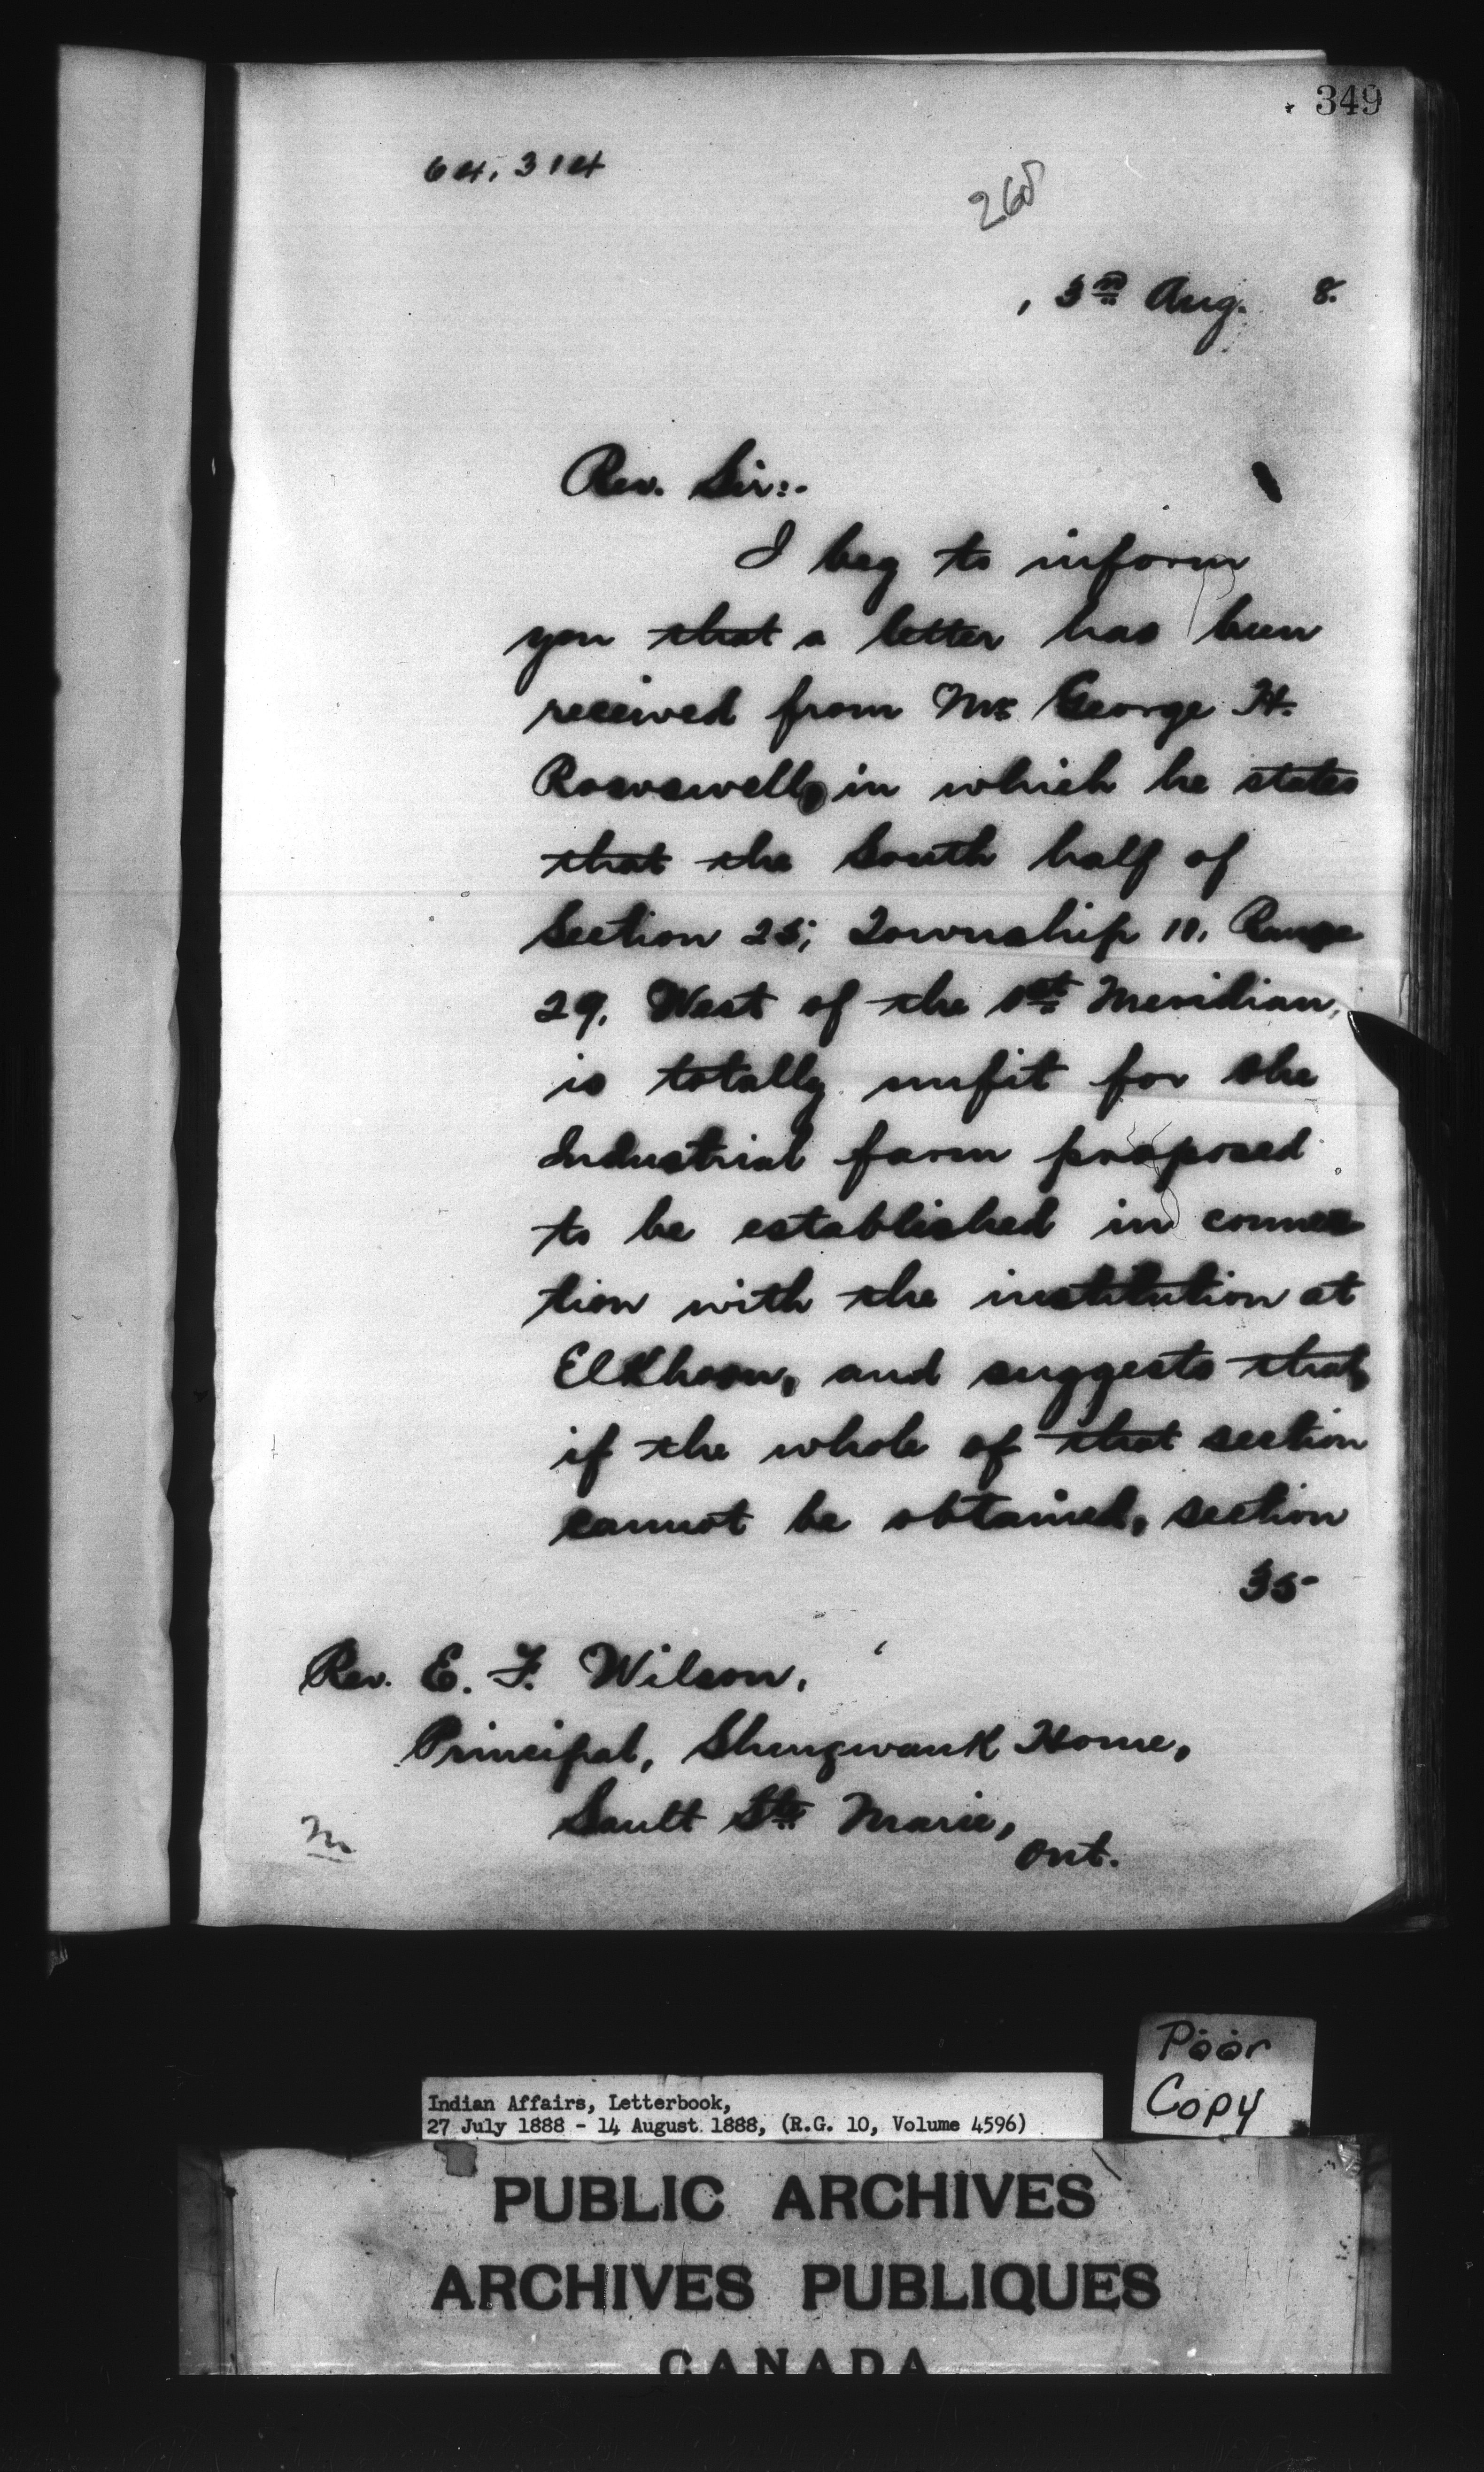 349
64,314
260
, 3rd Aug. 8.
Rev. Sir:-
I beg to inform
you that a letter has been
received from Mr George H.
in which he states
that the South half of
Section 25; Township 11, Range
29, West of the 1st Meridian,
is totally unfit for the
Industrial farm proposed
to be established in connec
tion with the institution at
Elkhorn, and suggests that,
if the whole of that section
cannot be obtained, section
35
Rev. E. F. Wilson,
Principal, Shingwauk Home,
Sault Ste Marie,
Ont.
Poor
Copy
Indian Affairs, Letterbook,
27 July 1888 - 14 August 1888, (R.G. 10, Volume 4596)
PUBLIC ARCHIVES
ARCHIVES PUBLIQUES
CANADA